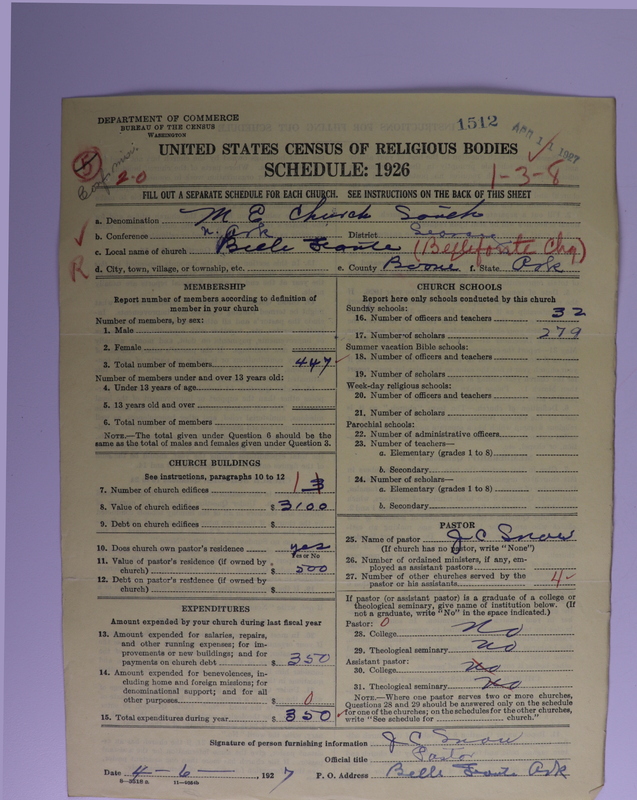 DEPARTMENT OF COMMERCE
BUREAU OF THE CENSUS
WASHINGTON
1512
APR 11 1927
UNITED STATES CENSUS OF RELIGIOUS BODIES
SCHEDULE: 1926
5
2-0
1-3-8
FILL OUT A SEPARATE SCHEDULE FOR EACH CHURCH. SEE INSTRUCTIONS ON THE BACK OF THIS SHEET
a. Denomination M E Church South
b. Conference N. Ark District
c. Local name of church Belle Fonte (Bellefonte Chg)
R
d. City, town, village, or township, etc. e. County Boone f. State Ark
MEMBERSHIP
Report number of members according to definition of member in your church
Number of members, by sex:
1. Male
2. Female
3. Total number of members 447
Number of members under and over 13 years old:
4. Under 13 years of age
5. 13 years old and over
6. Total number of members
NOTE.—The total given under Question 6 should be the same as the total of males and females given under Question 3.
CHURCH BUILDINGS
See instructions, paragraphs 10 to 12
7. Number of church edifices 3
8. Value of church edifices $ 3100
9. Debt on church edifices $
10. Does church own pastor's residence yes
Yes or No
11. Value of pastor's residence (if owned by church) $ 500
12. Debt on pastor's residence (if owned by church) $
EXPENDITURES
Amount expended by your church during last fiscal year
13. Amount expended for salaries, repairs, and other running expenses; for improvements or new buildings; and for payments on church debt $ 350
14. Amount expended for benevolences, including home and foreign missions; for denominational support; and for all other purposes $ 0
15. Total expenditures during year $ 350
CHURCH SCHOOLS
Report here only schools conducted by this church
Sunday schools:
16. Number of officers and teachers 32
17. Number of scholars 279
Summer vacation Bible schools:
18. Number of officers and teachers
19. Number of scholars
Week-day religious schools:
20. Number of officers and teachers
21. Number of scholars
Parochial schools:
22. Number of administrative officers
23. Number of teachers—
a. Elementary (grades 1 to 8)
b. Secondary
24. Number of scholars—
a. Elementary (grades 1 to 8)
b. Secondary
PASTOR
25. Name of pastor J C Snow
(If church has no pastor, write "None")
26. Number of ordained ministers, if any, employed as assistant pastors
27. Number of other churches served by the pastor or his assistants 4
If pastor (or assistant pastor) is a graduate of a college or theological seminary, give name of institution below. (If not a graduate, write "No" in the space indicated.)
Pastor: 0
28. College No
29. Theological seminary No
Assistant pastor:
30. College No
31. Theological seminary No
NOTE.—Where one pastor serves two or more churches, Questions 28 and 29 should be answered only on the schedule for one of the churches; on the schedules for the other churches, write "See schedule for church."
Signature of person furnishing information J C Snow
Official title Pastor
Date 4-6- 1927 P. O. Address Belle Fonte Ark